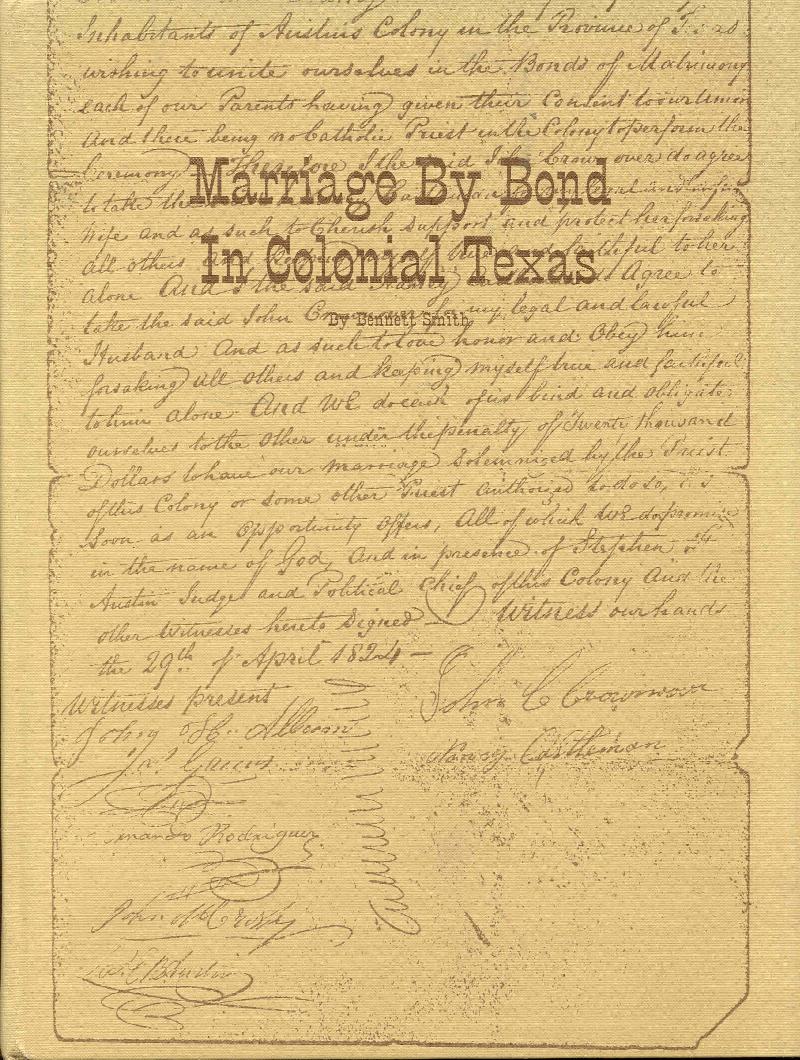 Inhabitants of Austins Colony in the Province of
wishing to unite ourselves in the Bonds of Matrimony
each of our Parents having given their Consent to our Union
And there being no Catholic Priest in the Colony to perform the
Ceremony Therefore I the said John Crownover do agree
Marriage By Bond
to take the legal and
wife and as such to Cherish support and protect her forsaking
In Colonial Texas
all others and faithful to her
alone And I the said Nancy Agree to
By Bennett Smith
take the said John my legal and lawful
Husband And as such to love honor and Obey him
forsaking all others and keeping myself true and faithful
to him alone And WE do each of us bind and obligate
ourselves to the other under the penalty of Twenty thousand
Dollars to have our marriage Solemnized by the Priest
of this Colony or some other Priest authorized to do so, as
soon as an opportunity offers, All of which WE do promise
in the name of God, And in presence of Stephen F
Austin Judge and Political Chief of this Colony And the
other Witnesses hereto Signed — Witness our hands
the 29th of April 1824 —
Witnesses present
John C Crownover
Nancy Castleman
Rodriguez